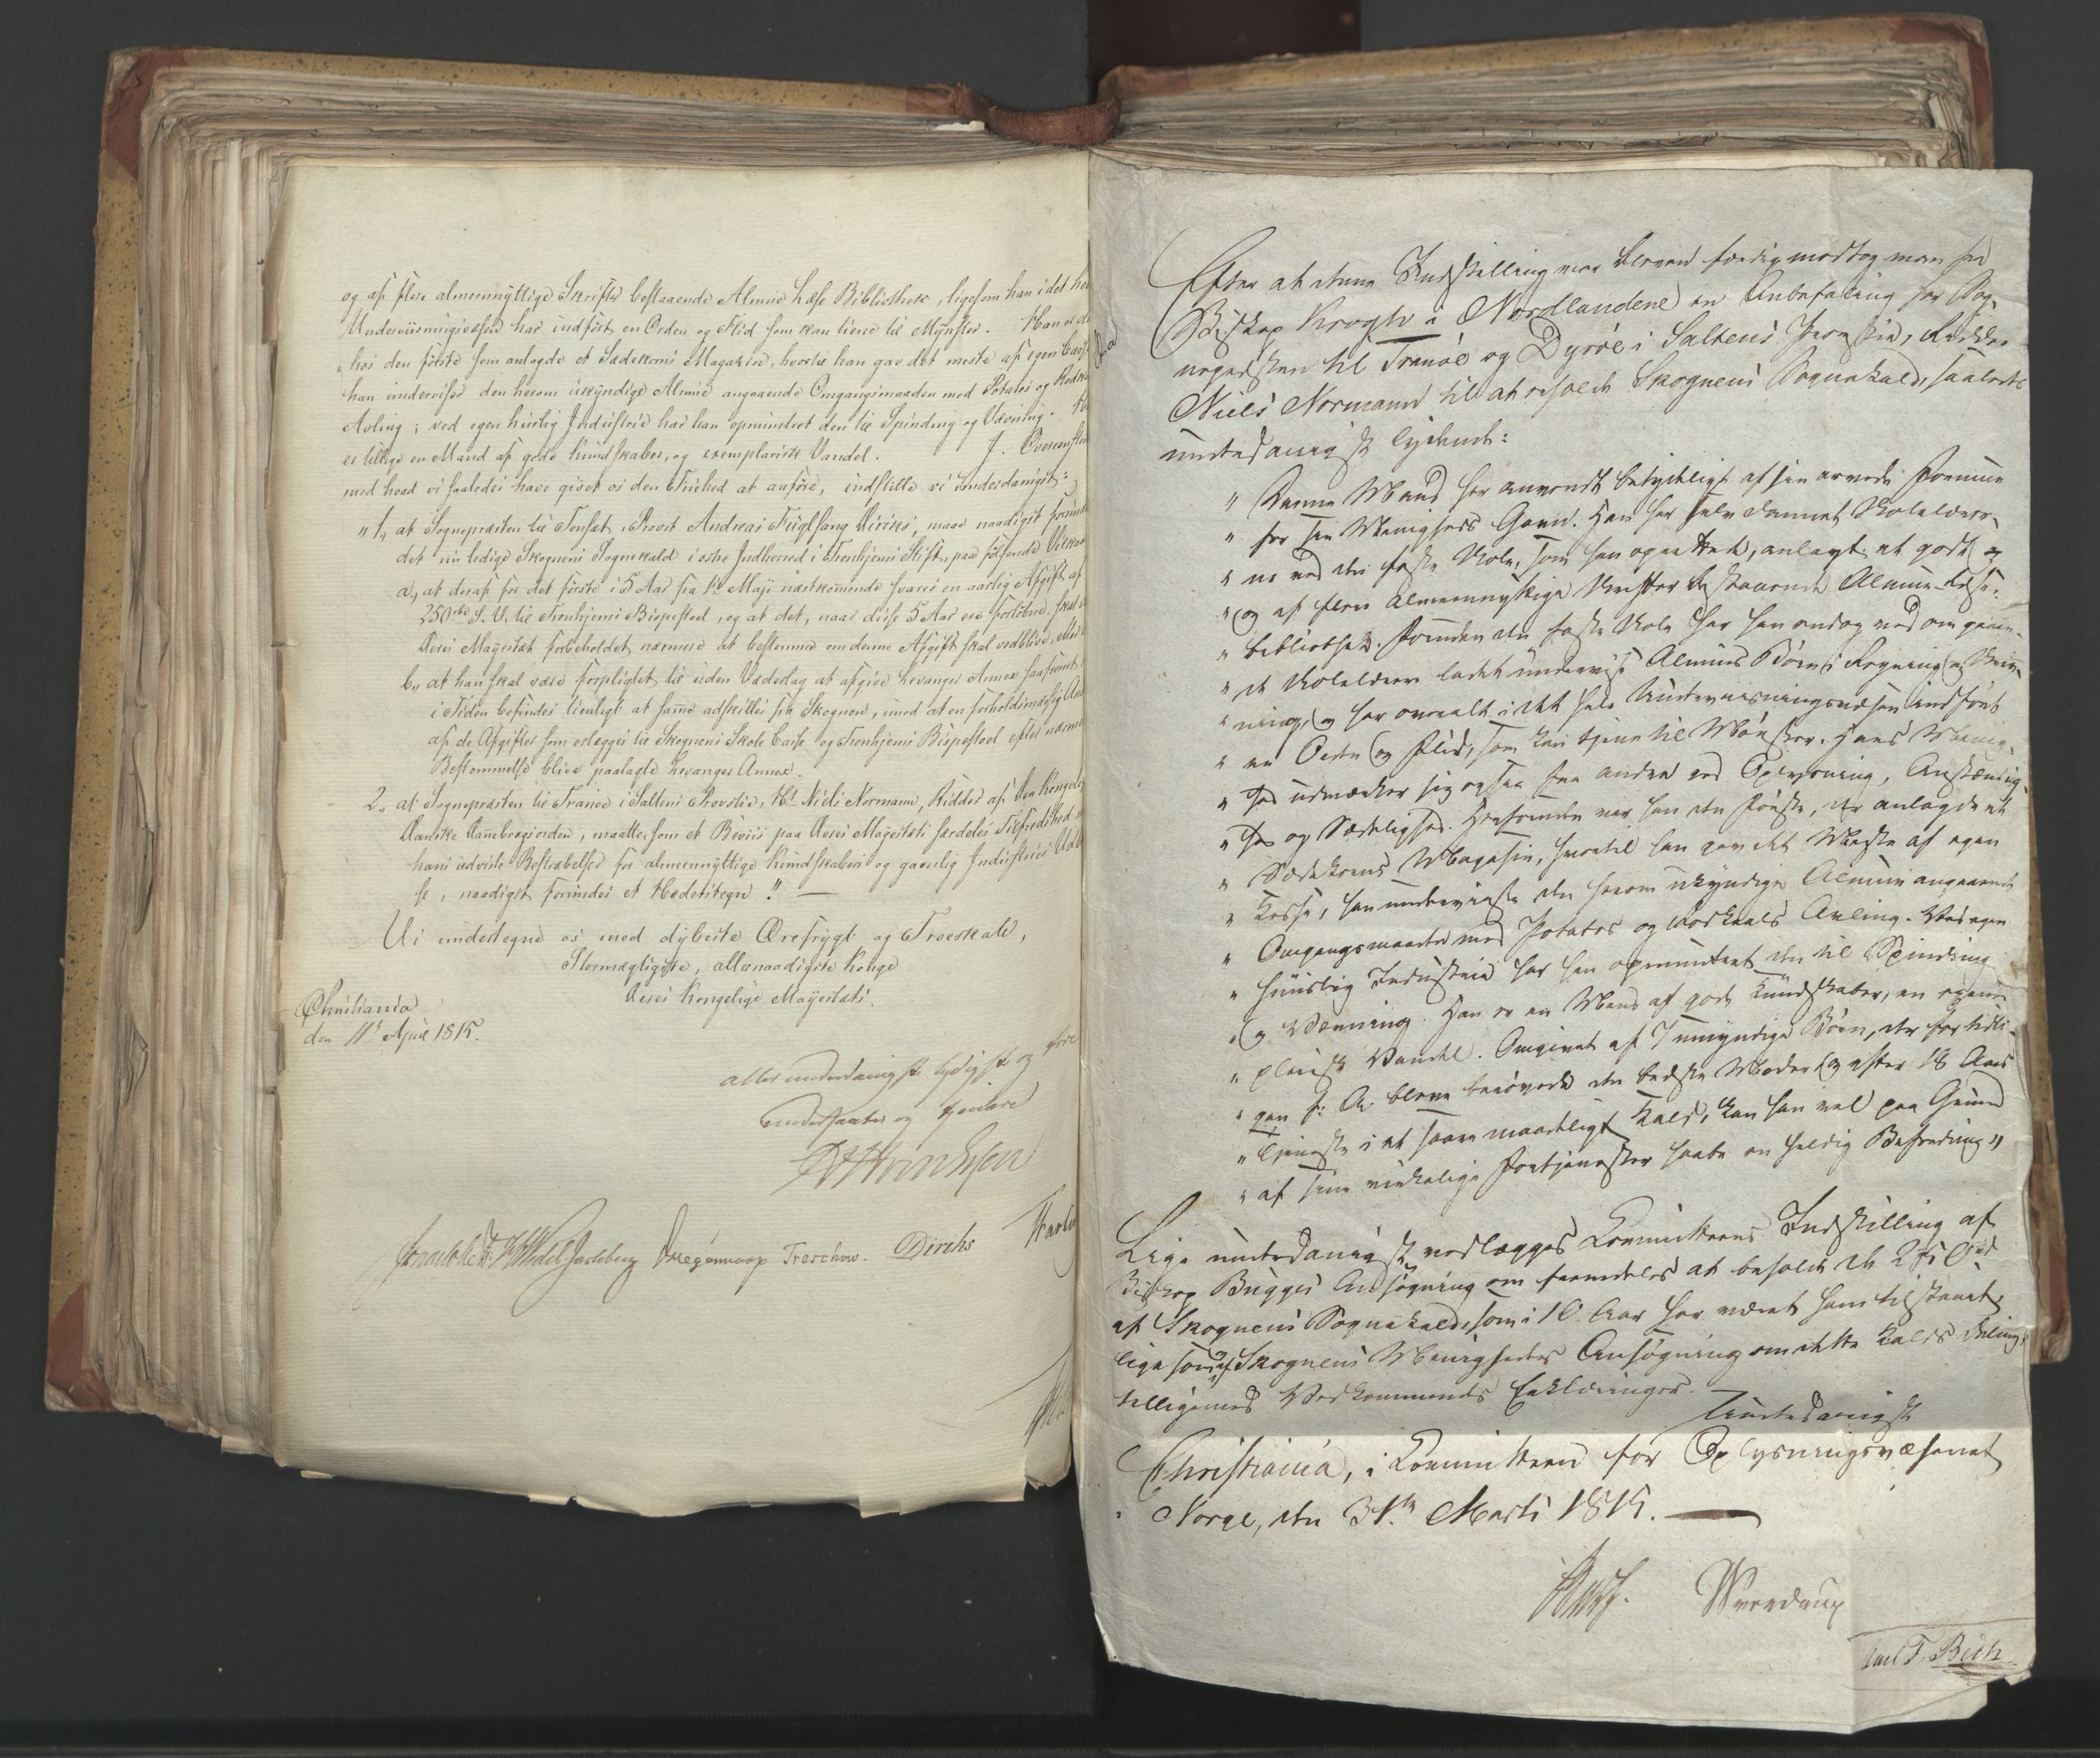 og af flere almeennyttige Skrifter bestaaende Almue Læse Bibliothek, ligesom han i det
Underviisningsvæsen har indført en Orden og Flid som kan tiene til Mynster. Han
hos den første som anlagde et Sædekorns Magazin, hvortil han gav det meste af egen
han underviser den herom ukyndige Almue angaaende Omgangsmaaden med Potatos og
Avling; ved egen huuslig Industrie har han opmuntret den til Spinding og Vævning.
er tillige en Mand af gode Kundskaber, og exemplarisk Vandel. J.
med hvad vi saaledes have givet os den Friehed at anføre, indstille vi underdanigst:
"1., at Sognepræsten til Tonset, Provst Andreas Fuglsang Diriks, maae naadigst
det nu ledige Skognens Sognekald i østre Indherred i Tronhjems Stift, paa følgende
a., at deraf for det første i 5 Aar fra 1te Maji næstkommende svares en aarlig Afgift af
250 rbd S. V. til Tronhjems Bispestoel, og at det, naar disse 5 Aar ere forløbne, skal
Deres Majestæt forbeholdet nærmere at bestemme om denne Afgift skal vedblive,
b., at han skal være forpligtet til uden Vederlag at afgive Levanger Annex saafremt
i Tiden befindes tienligt at samme adskilles fra Skognen, imod at en forholdsmæssig
af de Afgifter som erlægges til Skognens Skole Casse og Tronhjems Bispestoel efter
Bestemmelse blive paalagte Levanger Annex.
2., at Sognepræsten til Tranøe i Saltens Provstie, Hr. Niels Normann, Ridder af den
Danske Dannebrogsorden, maatte, som et Beviis paa Deres Majestæts særdeles Tilfredshed
hans udviste Bestræbelser for almeennyttige Kundskabers og gavnlig Industries
se, naadigst forundes et Hæderstegn." —
Vi undertegne os med dybeste Ærefrygt og Troeskab,
Stormægtigste, allernaadigste Konge
Deres Kongelige Majestæts.
Christiania
den 11te April 1815.
allerunderdanigste lydigste og
undersaatter og tjenere
Sommerhielm. Wedel Jarlsberg Treschow. Diriks
Efter at denne Indstilling var bleven færdig modtog man fra
Biskop Krogh i Nordlandene en Anbefaling for Sog-
nepræsten til Tranøe og Dyrøe i Saltens Provstie, Ridder
Niels Normann til at erholde Skognens Sognekald, saaledes
underdanigst lydende:
" Denne Mand har anvendt betydeligt af sin arvede Formue
" for sin Menigheds Gavn. Han har selv dannet Skolelære-
" re ved den faste Skole, som han oprettede, anlagt et godt og
" og af flere almeennyttige Skrifter bestaaende Almue-Læse-
" bibliothek. Foruden den faste Skole har han endog ved omgaaen-
" de Skolelærer ladet undervise Almues Børn i Regning og Skriv-
" ning, og har overalt i det hele Underviisningsvæsen indført
" en Orden og Flid, som kan tjene til Mønster. Hans Menig-
" hed udmærker sig ogsaa fra andre ved Oplysning, Anstændig-
" hed og Sædelighed. Desforuden var han den Første, der anlagde et
" Sædekorns Magasin, hvortil han gav det Meste af egen
" Casse, han underviiste den herom ukyndige Almue angaaende
" Omgangsmaaden med Potatos og Kaals Avling. Ved egen
" huuslig Industrie har han opmuntret den til Spinding
" og Vævning. Han er en Mand af gode Kundskaber, en exem-
" plarisk Vandel. Omgivet af 7 umyndige Børn, der for tidli-
" gen f: A: bleve berøvede den bedste Moder og efter 18 Aars
" Tjeneste i et saare maadeligt Kald, kan han vel paa Grund
" af sine virkelige Fortjenester haabe en heldig Befordring"
Lige underdanigst vedlægges Committeens Indstilling af
Biskop Bugges Ansøgning om fremdeles at beholde de 250 rd
af Skognens Sognekald, som i 10 Aar har været ham tilstaaet,
ligesom af Skognens Menigheders Ansøgning om dette Kalds Deling,
tilligemed Vedkommendes Erklæringer.
Underdanigst
Christiania, i Committeen for Oplysningsvæsenet
i Norge, den 31te Marts 1815. —
Sverdrup
Carl F. Bech